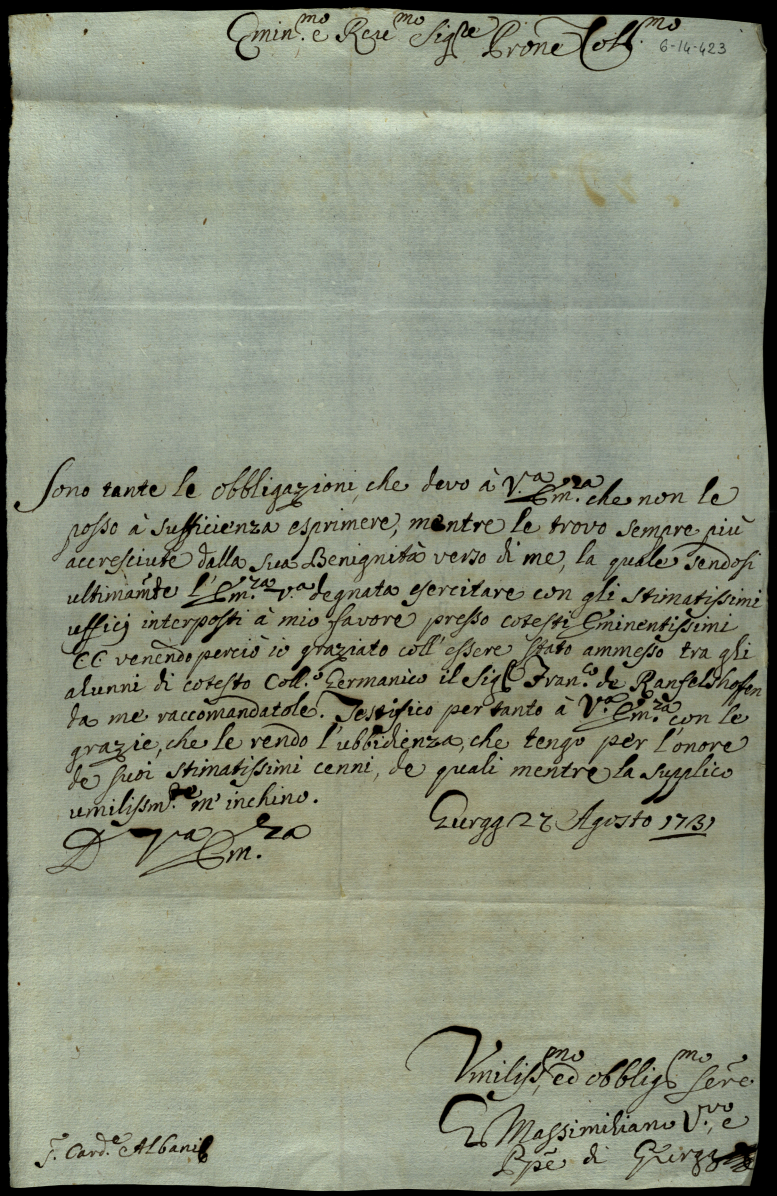 Emin.mo e Reue.mo Sig.re Prone Coll.mo
6-14-423
Sono tante le obbligazioni, che devo à V.a Em.za che non le
posso à sufficienza esprimere, mentre le trovo sempre più
accresciute dalla sua Benignità verso di me, la quale sendosi
ultimam.te l'Em.za v.a degnata esercitare con gli stimatissimi
ufficj interposti à mio favore presso cotesti Eminentissimi
CC venendo perciò io graziato coll'essere stato ammesso tra gli
alunni di cotesto Coll.o Germanico il Sig.r Fran.co de Ranfelshofen
da me raccomandatole. Testifico per tanto à V.a Em.za con le
grazie, che le rendo l'ubbidienza, che tengo per l'onore
de suoi stimatissimi cenni, de quali mentre la supplico
umilissm.te m'inchino.
Gurgg 27 Agosto 1731
D V.a Em.za
Vmiliss.mo ed obblig.mo Sere
Massimiliano V.vo, e
Ppe di Gurgg
S. Card.e Albani